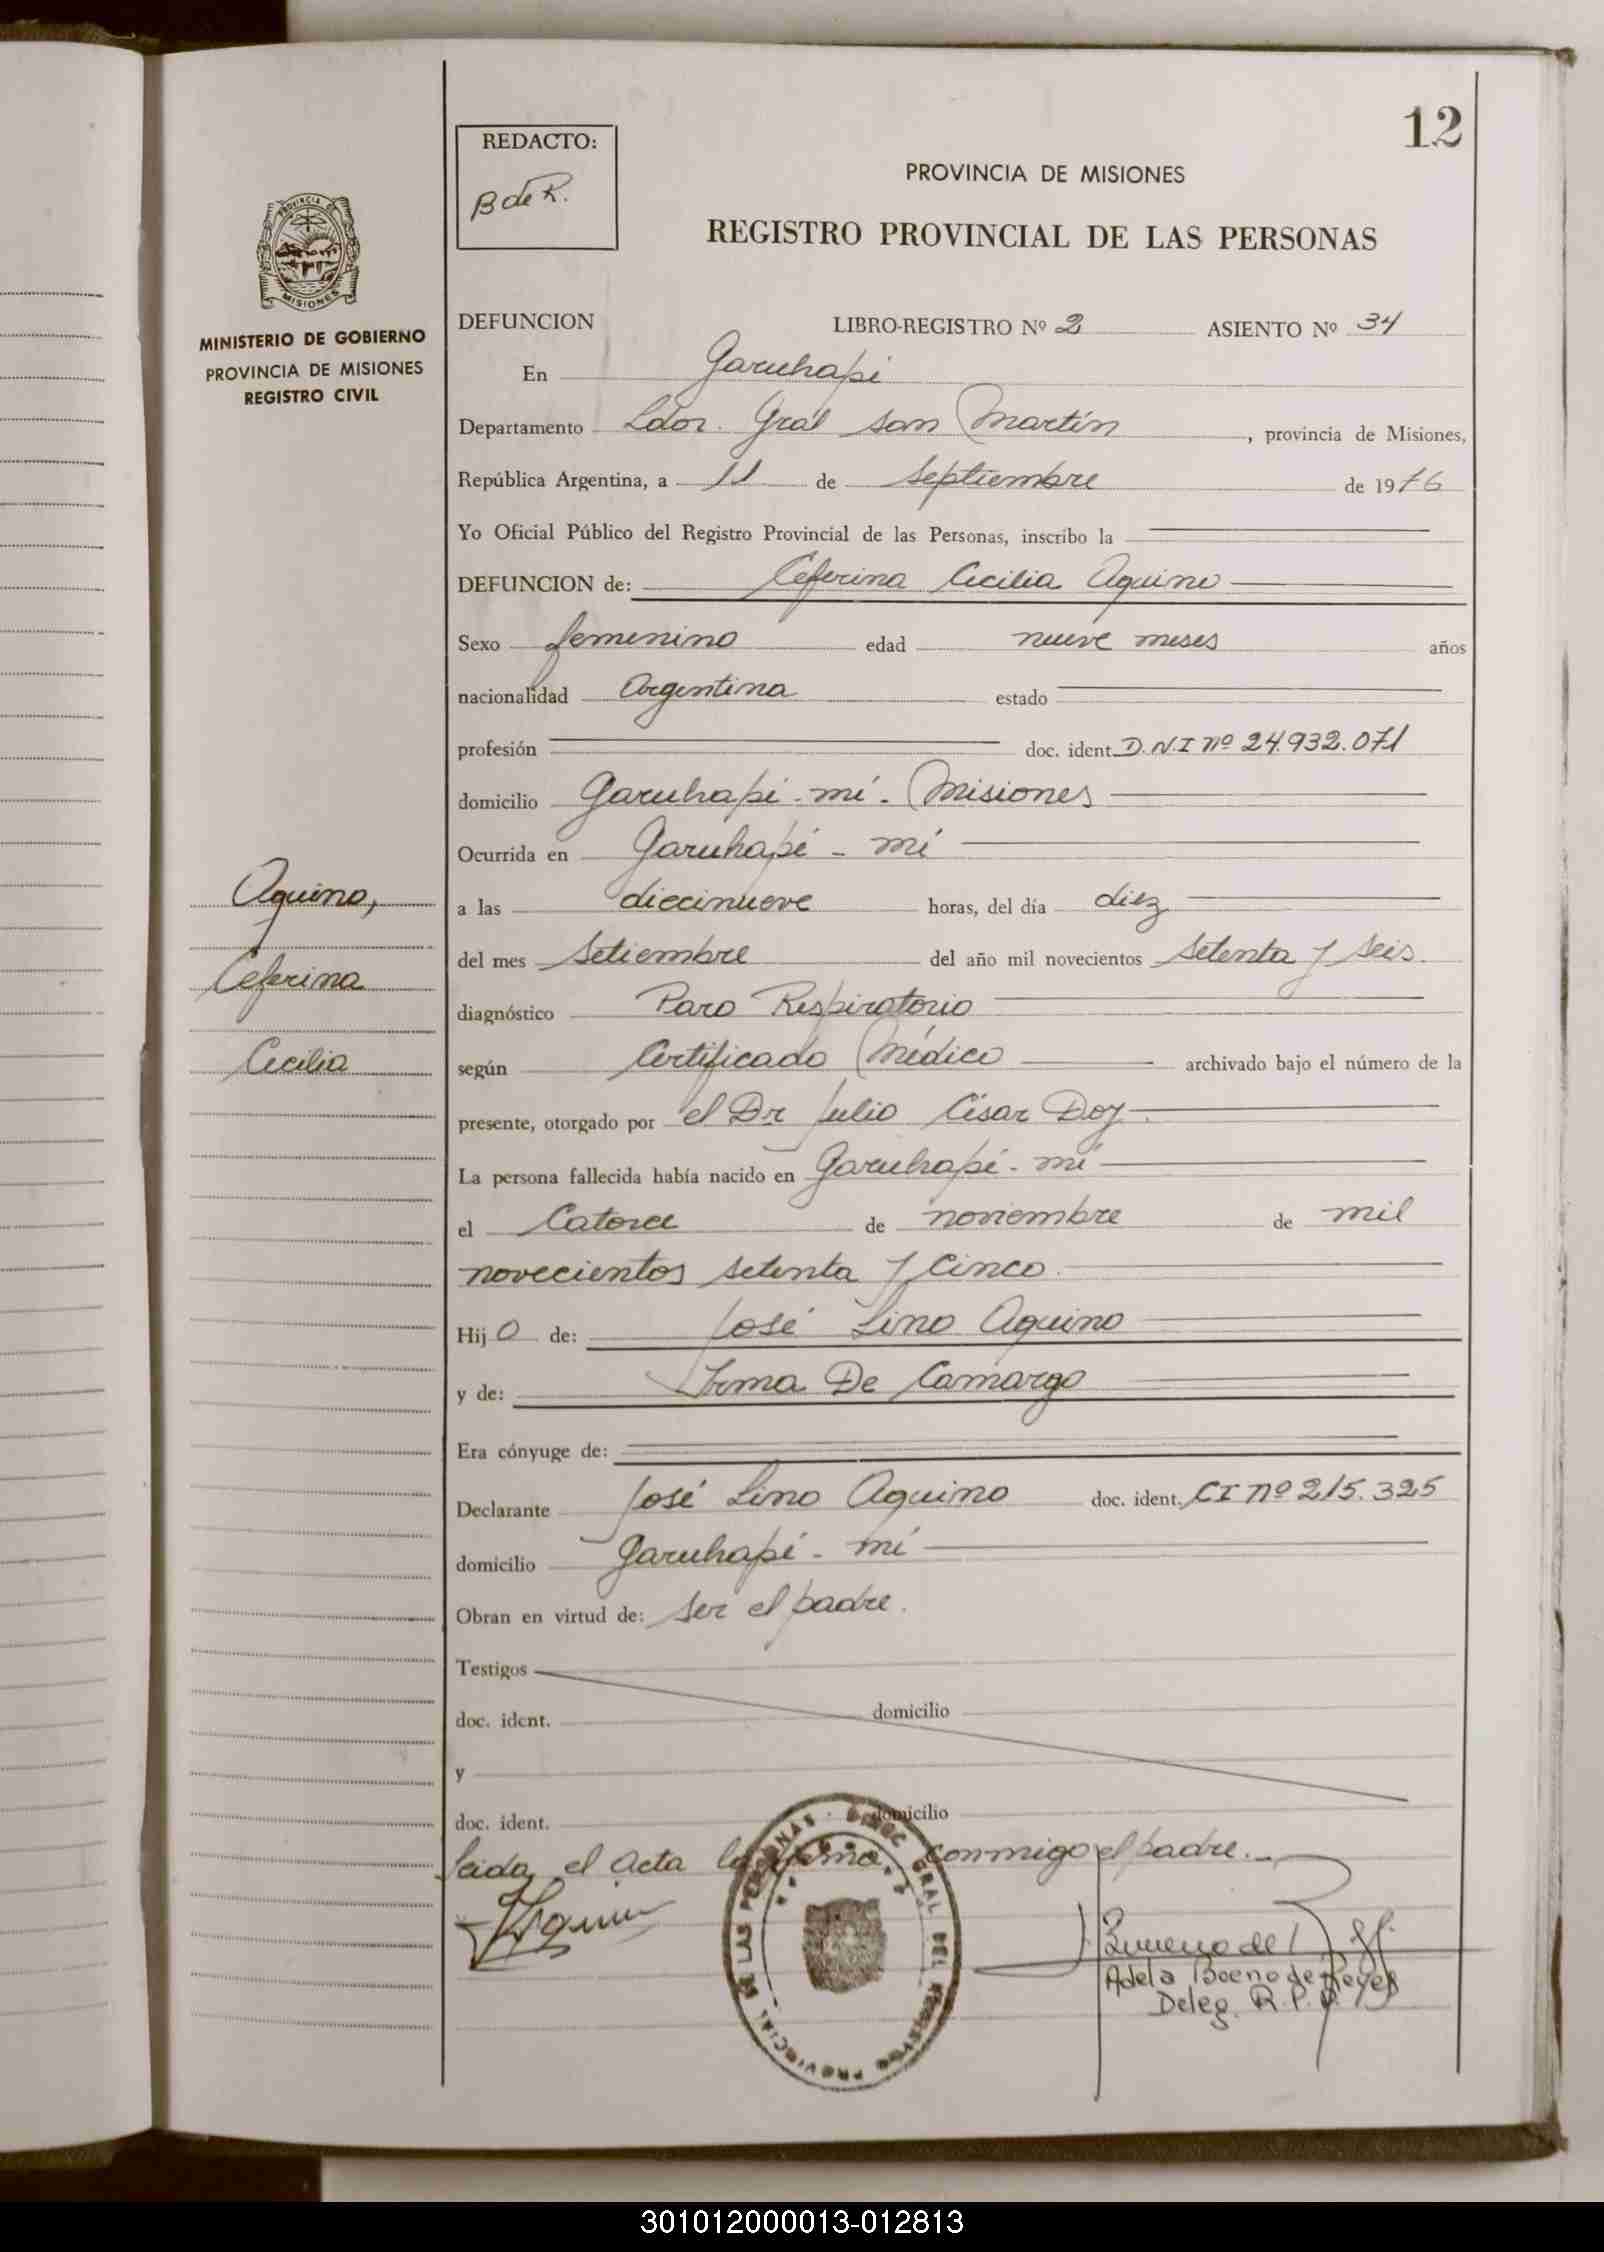 12
REDACTO:
B de R.
PROVINCIA DE MISIONES
REGISTRO PROVINCIAL DE LAS PERSONAS
PROVINCIA DE
MISIONES
MINISTERIO DE GOBIERNO
PROVINCIA DE MISIONES
REGISTRO CIVIL
DEFUNCION LIBRO-REGISTRO Nº 2 ASIENTO Nº 34
En Garuhapi
Departamento Ldor. Gral San Martín, provincia de Misiones,
República Argentina, a 11 de Septiembre de 1976
Yo Oficial Público del Registro Provincial de las Personas, inscribo la
DEFUNCION de: Ceferina Cecilia Aquino
Sexo femenino edad nueve meses años
nacionalidad Argentina estado
profesión doc. ident. D.N.I nº 24.932.071
domicilio Garuhapi-mí. Misiones
Ocurrida en Garuhapí - mí
a las diecinueve horas, del día diez
del mes Setiembre del año mil novecientos Setenta y Seis.
diagnóstico Paro Respiratorio
según Certificado Médico archivado bajo el número de la
presente, otorgado por el Dr Julio César Doy.
La persona fallecida había nacido en Garuhapí-mí
el Catorce de noviembre de mil
novecientos setenta y Cinco.
Hijo de: José Lino Aquino
y de: Irma De Camargo
Era cónyuge de:
Declarante José Lino Aquino doc. ident. CI nº 215.325
domicilio Garuhapí - mí
Obran en virtud de: ser el padre.
Testigos
doc. ident. domicilio
y
doc. ident. domicilio
Leida el acta la firma conmigo el padre.
Aquino,
Ceferina
Cecilia
DIREC. GRAL DEL REGISTRO PROVINCIAL DE LAS PERSONAS
Adela Boeno de Reyes
Deleg. R.P.P.
301012000013-012813